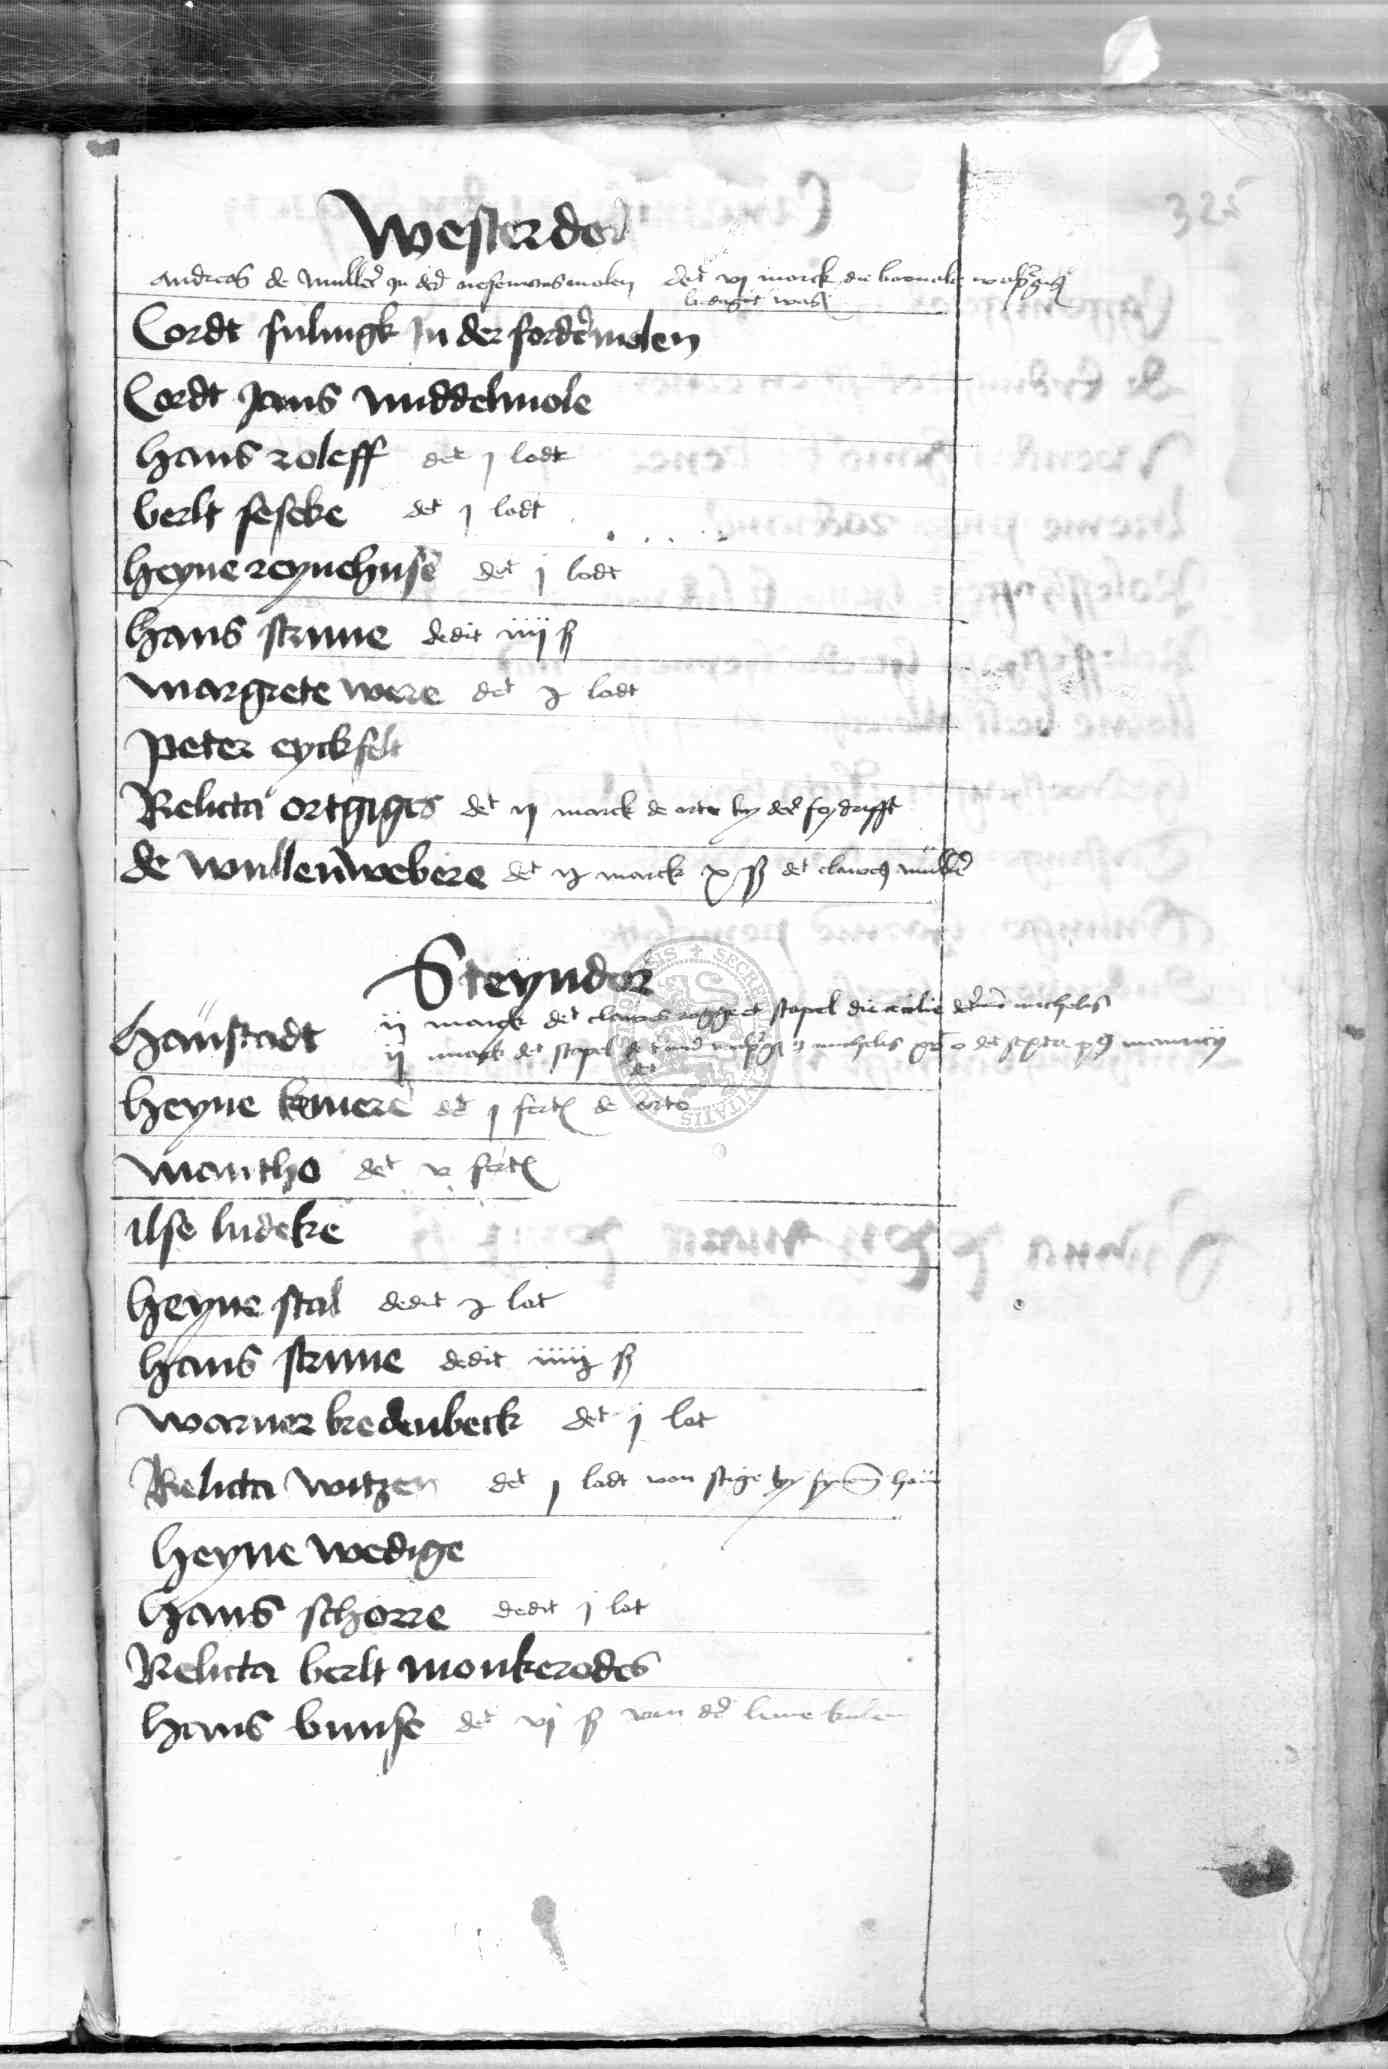 325
Westerdor
Andreas de muller in der det vj marck die
Cordt fulingk In der forder molen
Cordt Jans middelmole
hans roleff det j lodt
berlt seseke det j lodt
heyne reynehuse det j lodt
hans strune dedit iiij ß
margrete were det j lodt
peter eyckfelt
Relicta ortgiges det ij marck de orto by der
de wullenwebere det ij marck x ß det muller
Steyndor
hanstadt ij marck det stapel michelis
ij marck det stapel michelis det
det
heyne kemere det j fert de orto
mantho det fert
ilse ludeke
heyne stal dedit j lot
hans strune dedit iiiij ß
warner bredenbeck det j lot
Relicta witzen det j lodt von stige by
heyne wedige
hans schorre dedit j lot
Relicta berlt monkerodes
hans bunse det vj ß van der leme kulen